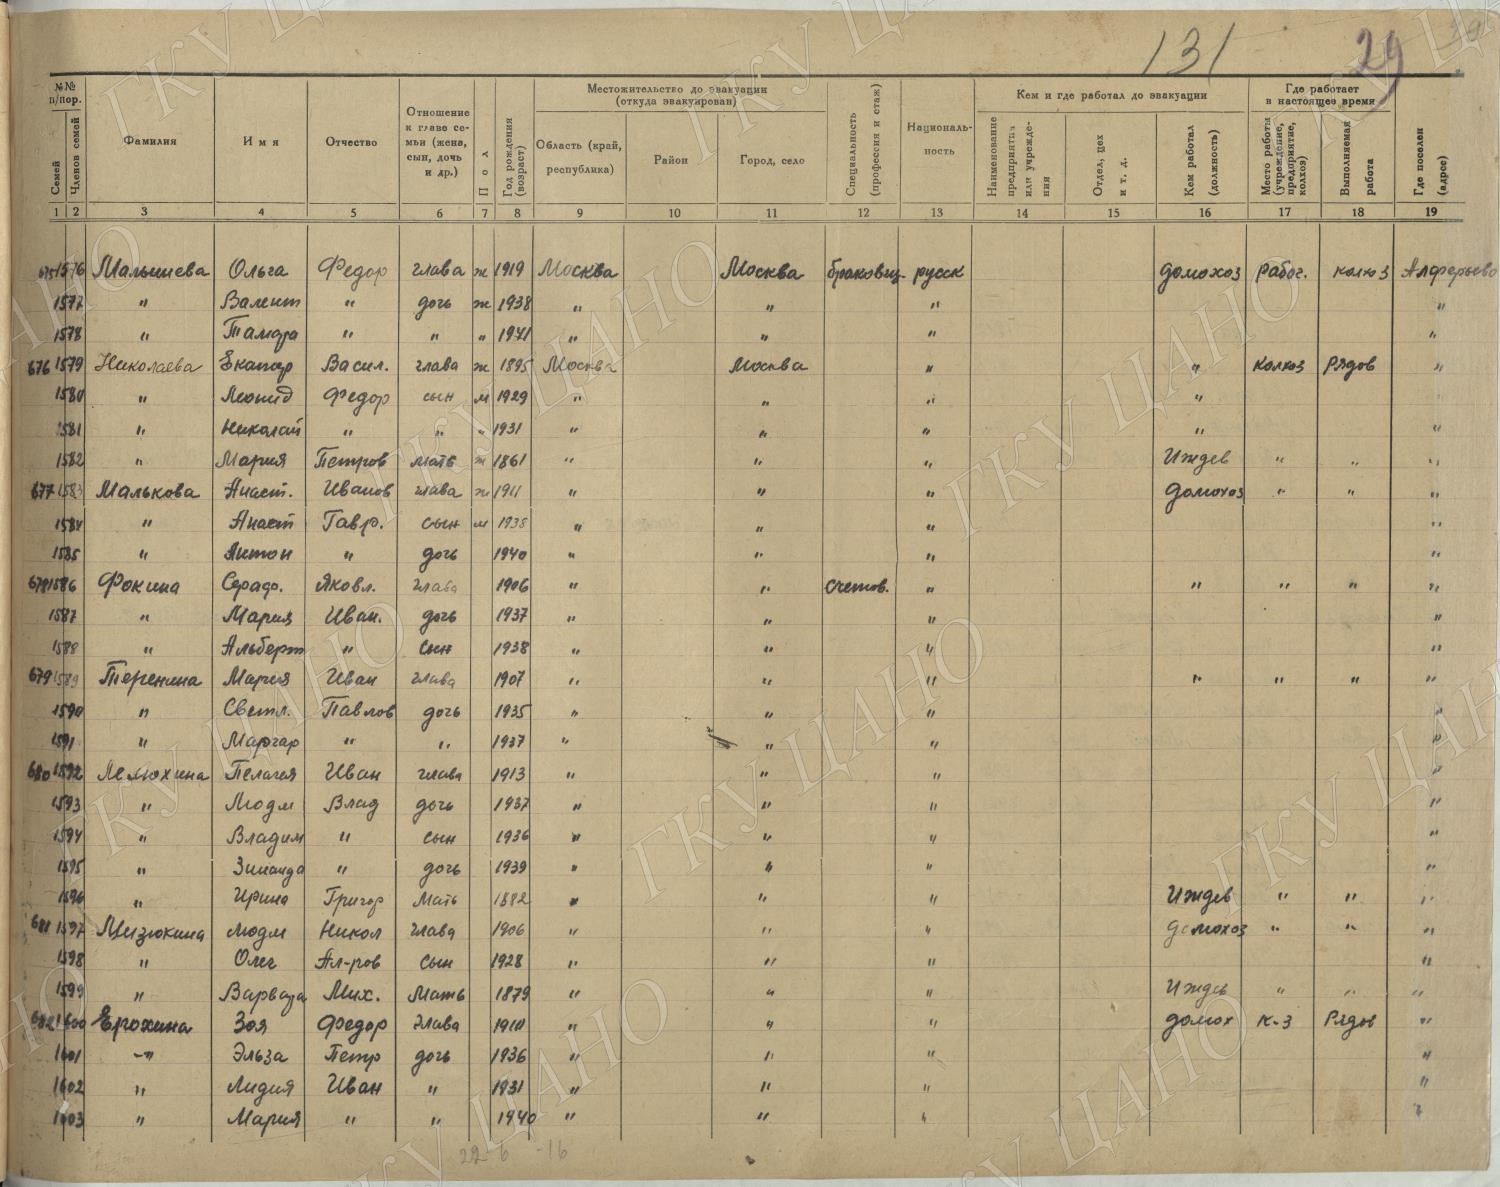 131 29
№№ п/пор.
Семей
Членов семей
Фамилия
Имя
Отчество
Отношение к главе семьи (жена, сын, дочь и др.)
Пол
Год рождения (возраст)
Местожительство до эвакуации (откуда эвакуирован)
Область (край, республика)
Район
Город, село
Специальность (профессия и стаж)
Националь-ность
Кем и где работал до эвакуации
Наименование предприятия или учрежде-ния
Отдел, цех и т. д.
Кем работал (должность)
Где работает в настоящее время
Место работы (учреждение, предприятие, колхоз)
Выполняемая работа
Где поселен (адрес)
1 2 3 4 5 6 7 8 9 10 11 12 13 14 15 16 17 18 19
675 1576 Малышева Ольга Федор глава ж 1919 Москва Москва браковщ. русск домохоз работ. колхоз Алферьево
1577 " Валент " дочь ж 1938 " " " "
1578 " Тамара " " " 1941 " " " "
676 1579 Николаева Екатер Васил. глава ж 1895 Москва Москва " " колхоз Рядов "
1580 " Леонид Федор сын м 1929 " " " "
1581 " Николай " " " 1931 " " " " "
1582 " Мария Петров мать ж 1861 " " " Иждев " " "
677 1583 Малькова Анаст. Иванов глава ж 1911 " " " домохоз " " "
1584 " Анаст Гавр. сын м 1938 " " " "
1585 " Антон " дочь 1940 " " " "
678 1586 Фокина Сераф. Яковл. глава 1906 " " счетов. " " " " "
1587 " Мария Иван. дочь 1937 " " " "
1588 " Альберт " сын 1938 " " " "
679 1589 Теренина Мария Иван глава 1907 " " " " " " "
1590 " Светл. Павлов дочь 1935 " " " "
1591 " Маргар " " 1937 " " " "
680 1592 Пелагея Иван глава 1913 " " " "
1593 " Людм Влад дочь 1937 " " " "
1594 " Владим " сын 1936 " " " "
1595 " Зинаида " дочь 1939 " " " "
1596 " Ирина Григор Мать 1882 " " " Иждев " " "
681 1597 Мизюкина Людм Никол глава 1906 " " " домохоз " " "
1598 " Олег Ал-ров сын 1928 " " " "
1599 " Варвара Мих. Мать 1879 " " " Иждев " " "
682 1600 Ерохина Зоя Федор глава 1910 " " " домох к-з Рядов "
1601 -"- Эльза Петр дочь 1936 " " " "
1602 " Лидия Иван " 1931 " " " "
1603 " Мария " " 1940 " " " "
22 6 -16
ГКУ ЦАНО